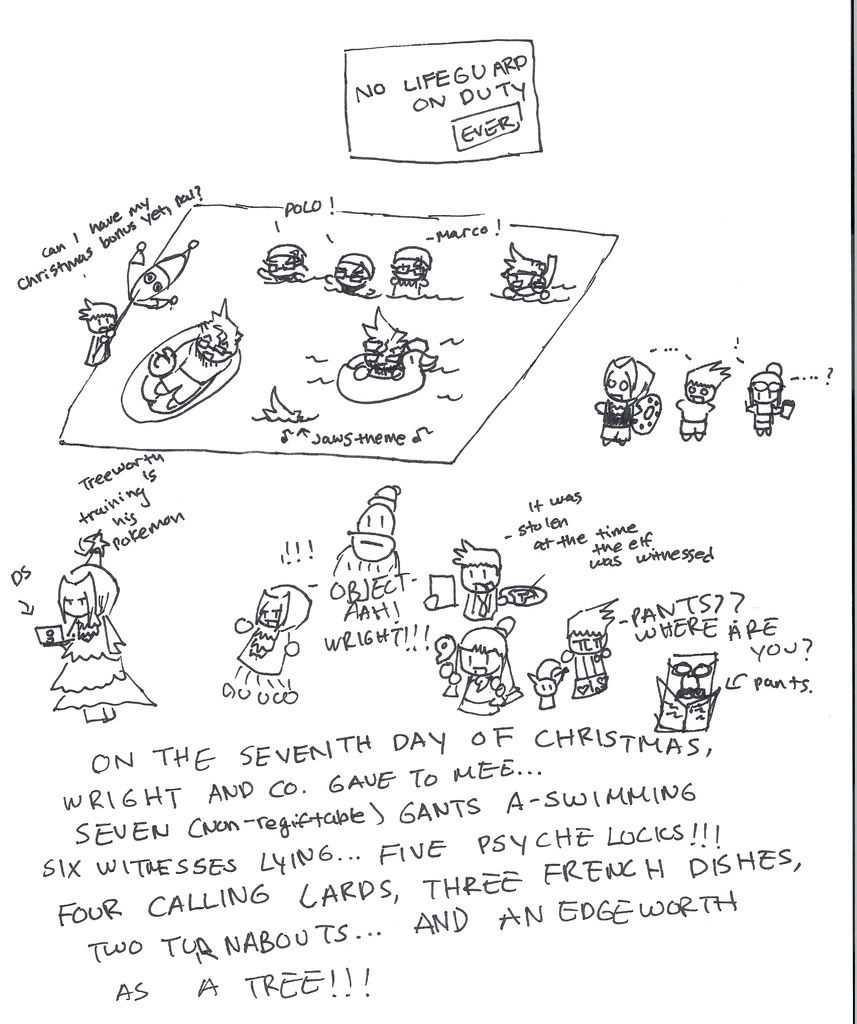 NO LIFEGUARD
ON DUTY
EVER
can I have my
Christmas bonus yet, pal?
POLO!
-Marco!
....
!
....?
♫ ↑ Jaws theme ♫
Treeworth
training is
his
pokemon
DS
!!!
OBJECT-
AAH!
WRIGHT!!!
It was
stolen
at the time
the elf
was witnessed
-PANTS??
WHERE ARE
YOU?
← pants.
ON THE SEVENTH DAY OF CHRISTMAS,
WRIGHT AND CO. GAVE TO MEE...
SEVEN (non-regiftable) GANTS A-SWIMMING
SIX WITNESSES LYING... FIVE PSYCHE LOCKS!!!
FOUR CALLING CARDS, THREE FRENCH DISHES,
TWO TURNABOUTS... AND AN EDGEWORTH
AS A TREE!!!